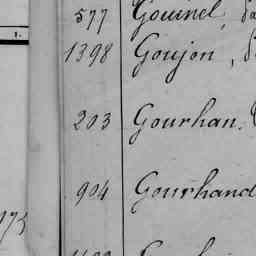 577 Gouinel
1398 Goujon,
203 Gourhan.
904 Gourhand